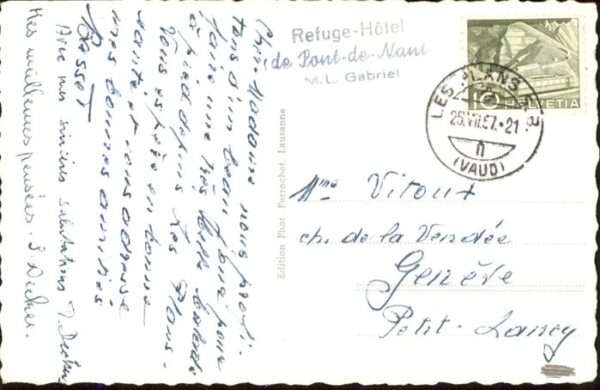 Chère Madame nous profi-
tons d'un beau jour pour
faire une très belle balade
à pied depuis Les Plans.
Vous espère en bonne
santé et vous adresse
mes bonnes amitiés
Basset
Avec mes sincères salutations
Mes meilleures pensées.
Edition Phot. Perrochet, Lausanne
Refuge-Hôtel
de Pont-de-Nant
M. L. Gabriel
10 HELVETIA
LES PLANS
25.VII.57.-21
(VAUD)
Mme Vitoux
ch. de la Vendée
Genève
Petit-Lancy